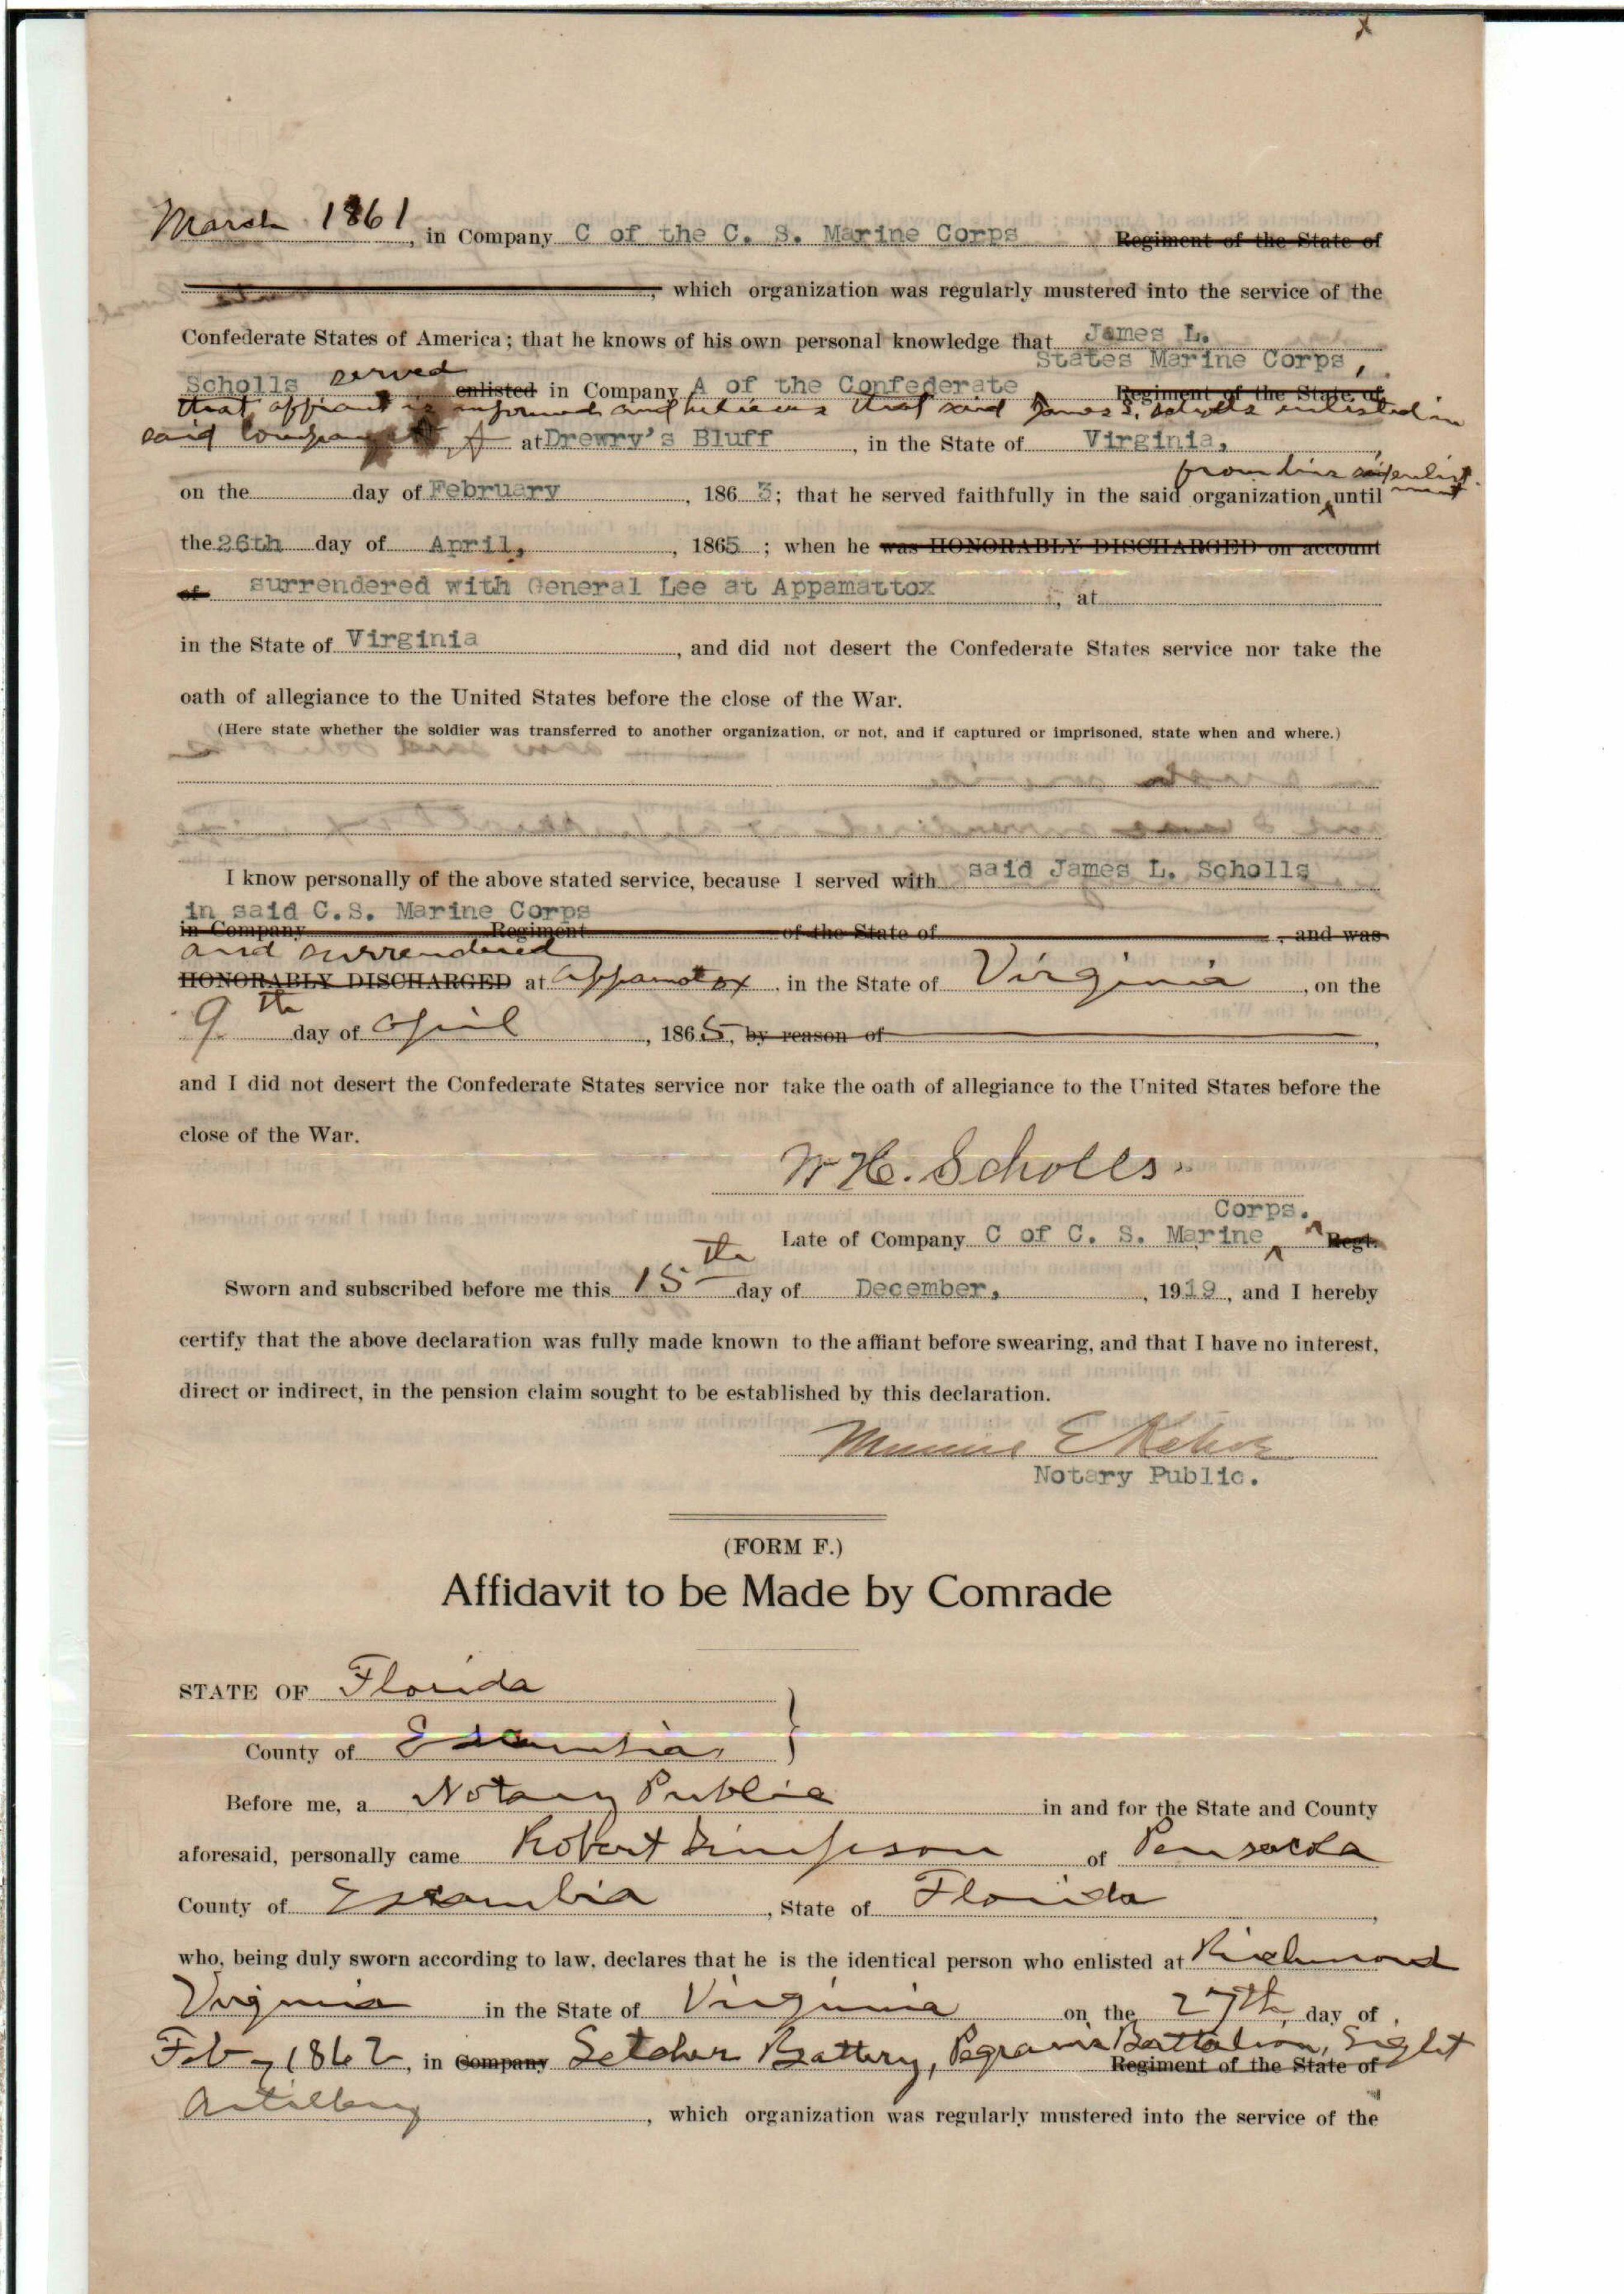 March 1861, in Company C of the C. S. Marine Corps Regiment of the State of
, which organization was regularly mustered into the service of the
Confederate States of America; that he knows of his own personal knowledge that James L.
States Marine Corps,
Scholls served enlisted in Company A of the Confederate Regiment of the State of
that affiant is informed and believes that said James L. Scholls enlisted in
said Company A at Drewry's Bluff, in the State of Virginia,
from his enlistment
on the day of February, 1863; that he served faithfully in the said organization until
the 26th day of April, 1865; when he was HONORABLY DISCHARGED on account
of surrendered with General Lee at Appamattox, at
in the State of Virginia, and did not desert the Confederate States service nor take the
oath of allegiance to the United States before the close of the War.
(Here state whether the soldier was transferred to another organization, or not, and if captured or imprisoned, state when and where.)
I know personally of the above stated service, because I served with said James L. Scholls
in said C.S. Marine Corps
in Company Regiment of the State of, and was
and surrendered
HONORABLY DISCHARGED at Appamatox, in the State of Virginia, on the
9th day of April, 1865, by reason of,
and I did not desert the Confederate States service nor take the oath of allegiance to the United States before the
close of the War.
W H. Scholls
Corps.
Late of Company C of C. S. Marine Regt.
Sworn and subscribed before me this 15th day of December, 1919, and I hereby
certify that the above declaration was fully made known to the affiant before swearing, and that I have no interest,
direct or indirect, in the pension claim sought to be established by this declaration.
Minnie E
Notary Public.
(FORM F.)
Affidavit to be Made by Comrade
STATE OF Florida
County of Escambia
Before me, a Notary Public in and for the State and County
aforesaid, personally came Robert Simpson of Pensacola
County of Escambia, State of Florida,
who, being duly sworn according to law, declares that he is the identical person who enlisted at Richmond
Virginia in the State of Virginia on the 27th day of
Feby 1862, in Company Letcher Battery, Pegrams Battalion, Light
Regiment of the State of
Artillery, which organization was regularly mustered into the service of the